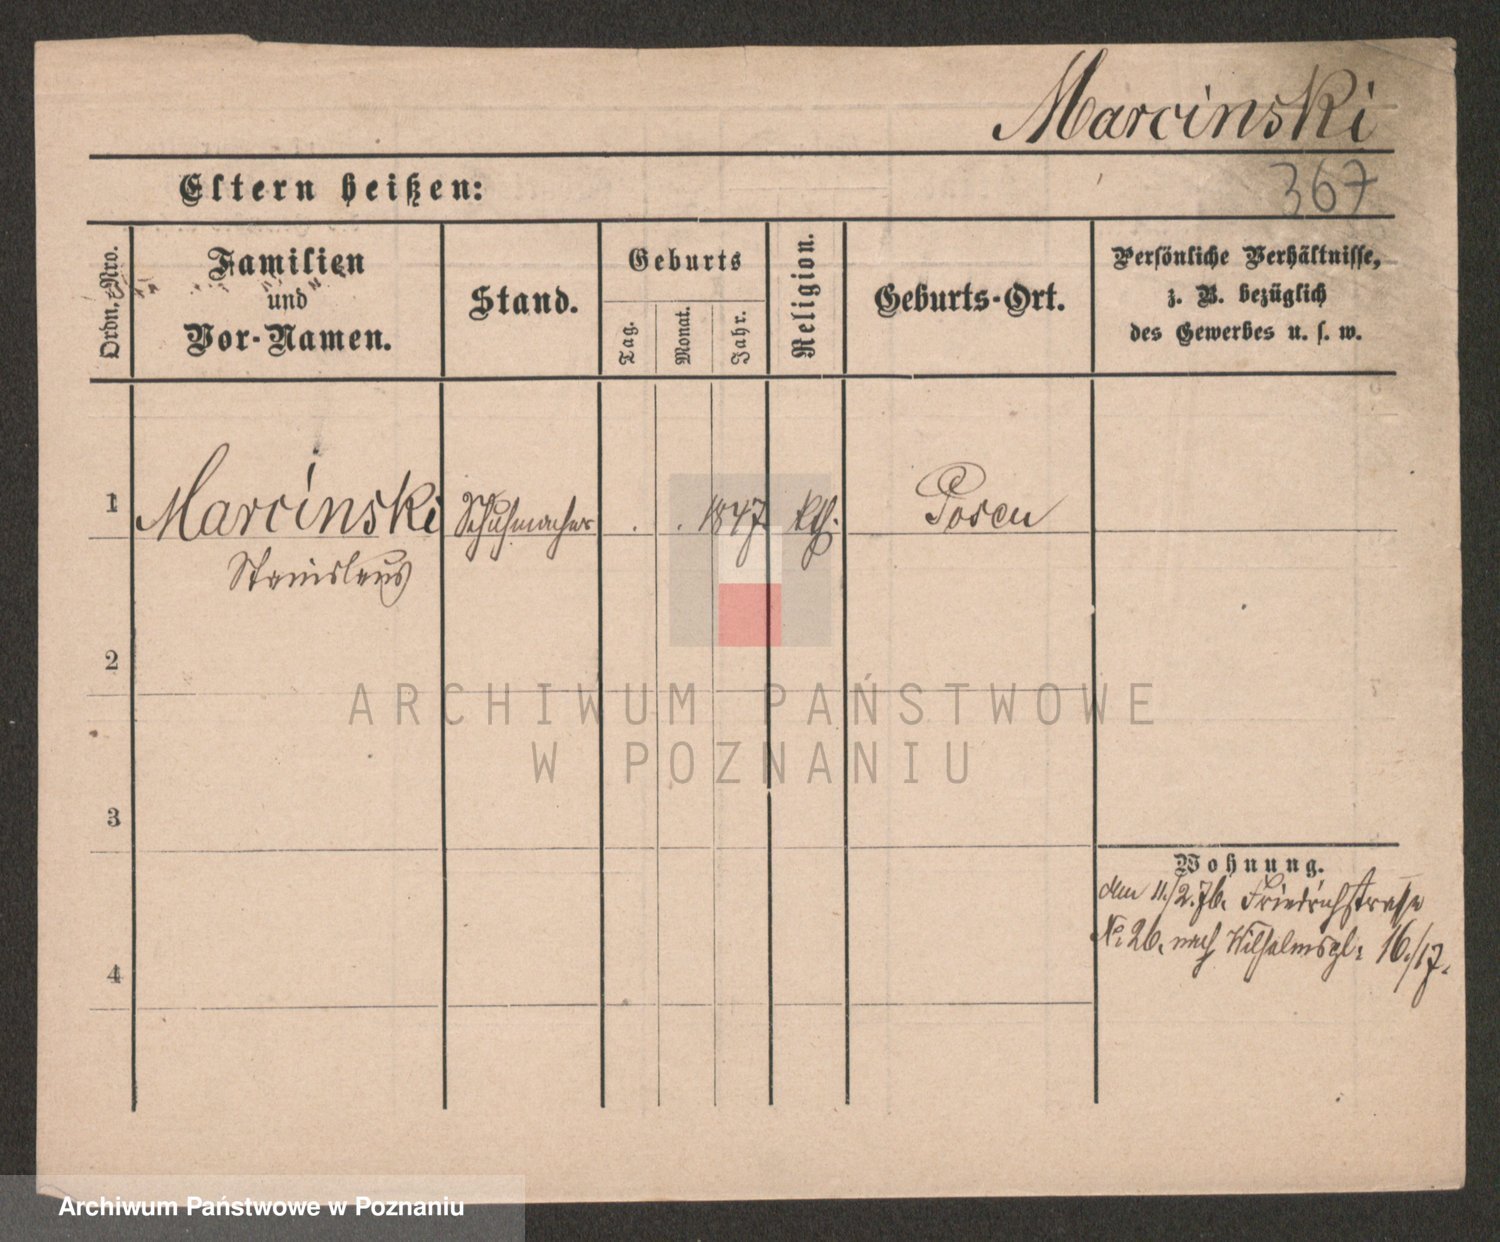 Marcinski
367
Eltern heißen:
Ordn.-Nro.
Familien
und
Vor-Namen.
Stand.
Geburts
Tag.
Monat.
Jahr.
Religion.
Geburts-Ort.
Persönliche Verhältnisse,
z. B. bezüglich
des Gewerbes u. s. w.
1
Marcinski
Schuhmacher
. . 1847
kth.
Posen
Stanislaus
2
ARCHIWUM PAŃSTWOWE
W POZNANIU
3
Wohnung.
den 11./2. 76. Friedrichstrasse
No. 26. nach Wilhelmspl. 16./17.
4
Archiwum Państwowe w Poznaniu